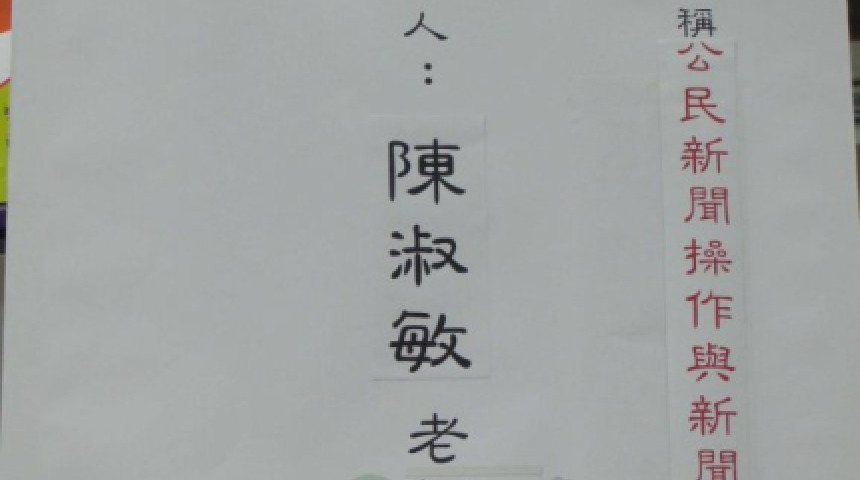 稱公民新聞操作與新聞
人：陳淑敏老